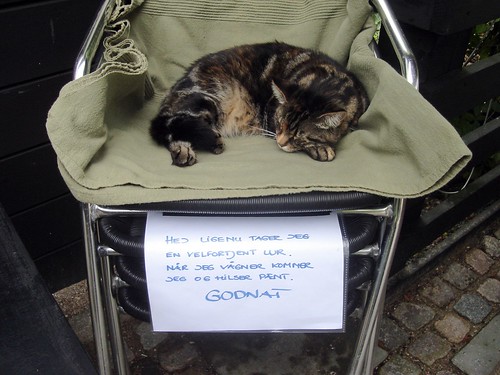 HEJ LIGENU TAGER JEG
EN VELFORTJENT LUR.
NÅR JEG VÅGNER KOMMER
JEG OG HILSER PÆNT.
GODNAT